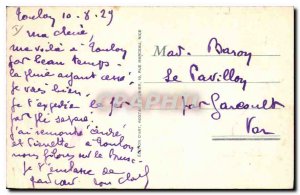 Toulon 10.8.29
Ma chérie,
me voilà à Toulon
par beau temps -
la pluie ayant cessé.
je vais bien.
Je t'expédie le
par pli séparé.
j'ai remonté
et Pierrette à Toulon
nous filons sur le Brusc -
Je t'embrasse de
ton
Mad. Baroy
Le Pavillon
par Gareoult
Var